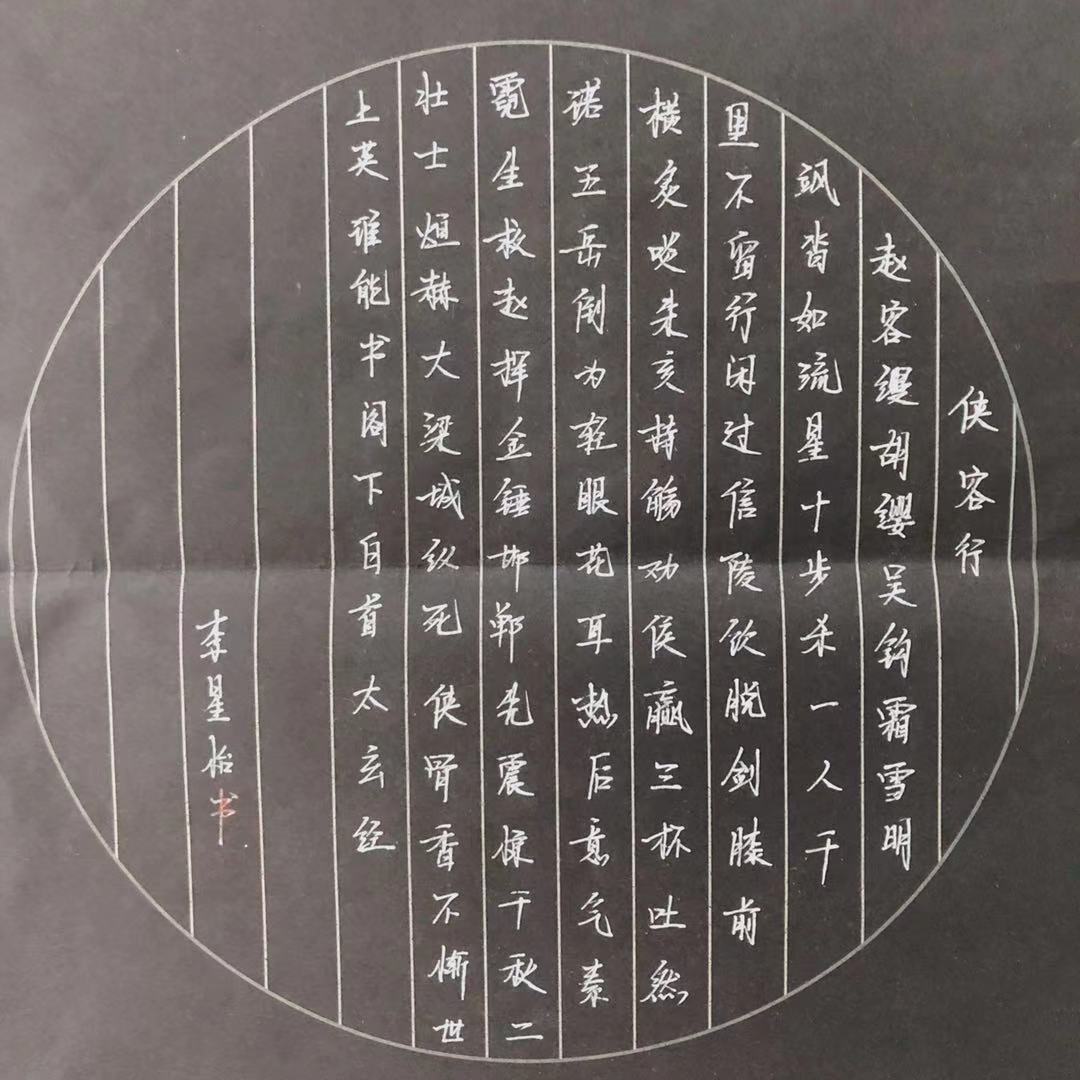 侠客行
赵客缦胡缨吴钩霜雪明
飒沓如流星十步杀一人千
里不留行闲过信陵饮脱剑膝前
横炙啖朱亥持觞劝侯嬴三杯吐然
诺五岳倒为轻眼花耳热后意气素
霓生救赵挥金锤邯郸先震惊千秋二
壮士烜赫大梁城纵死侠骨香不惭世
上英谁能书阁下白首太玄经
李星怡书